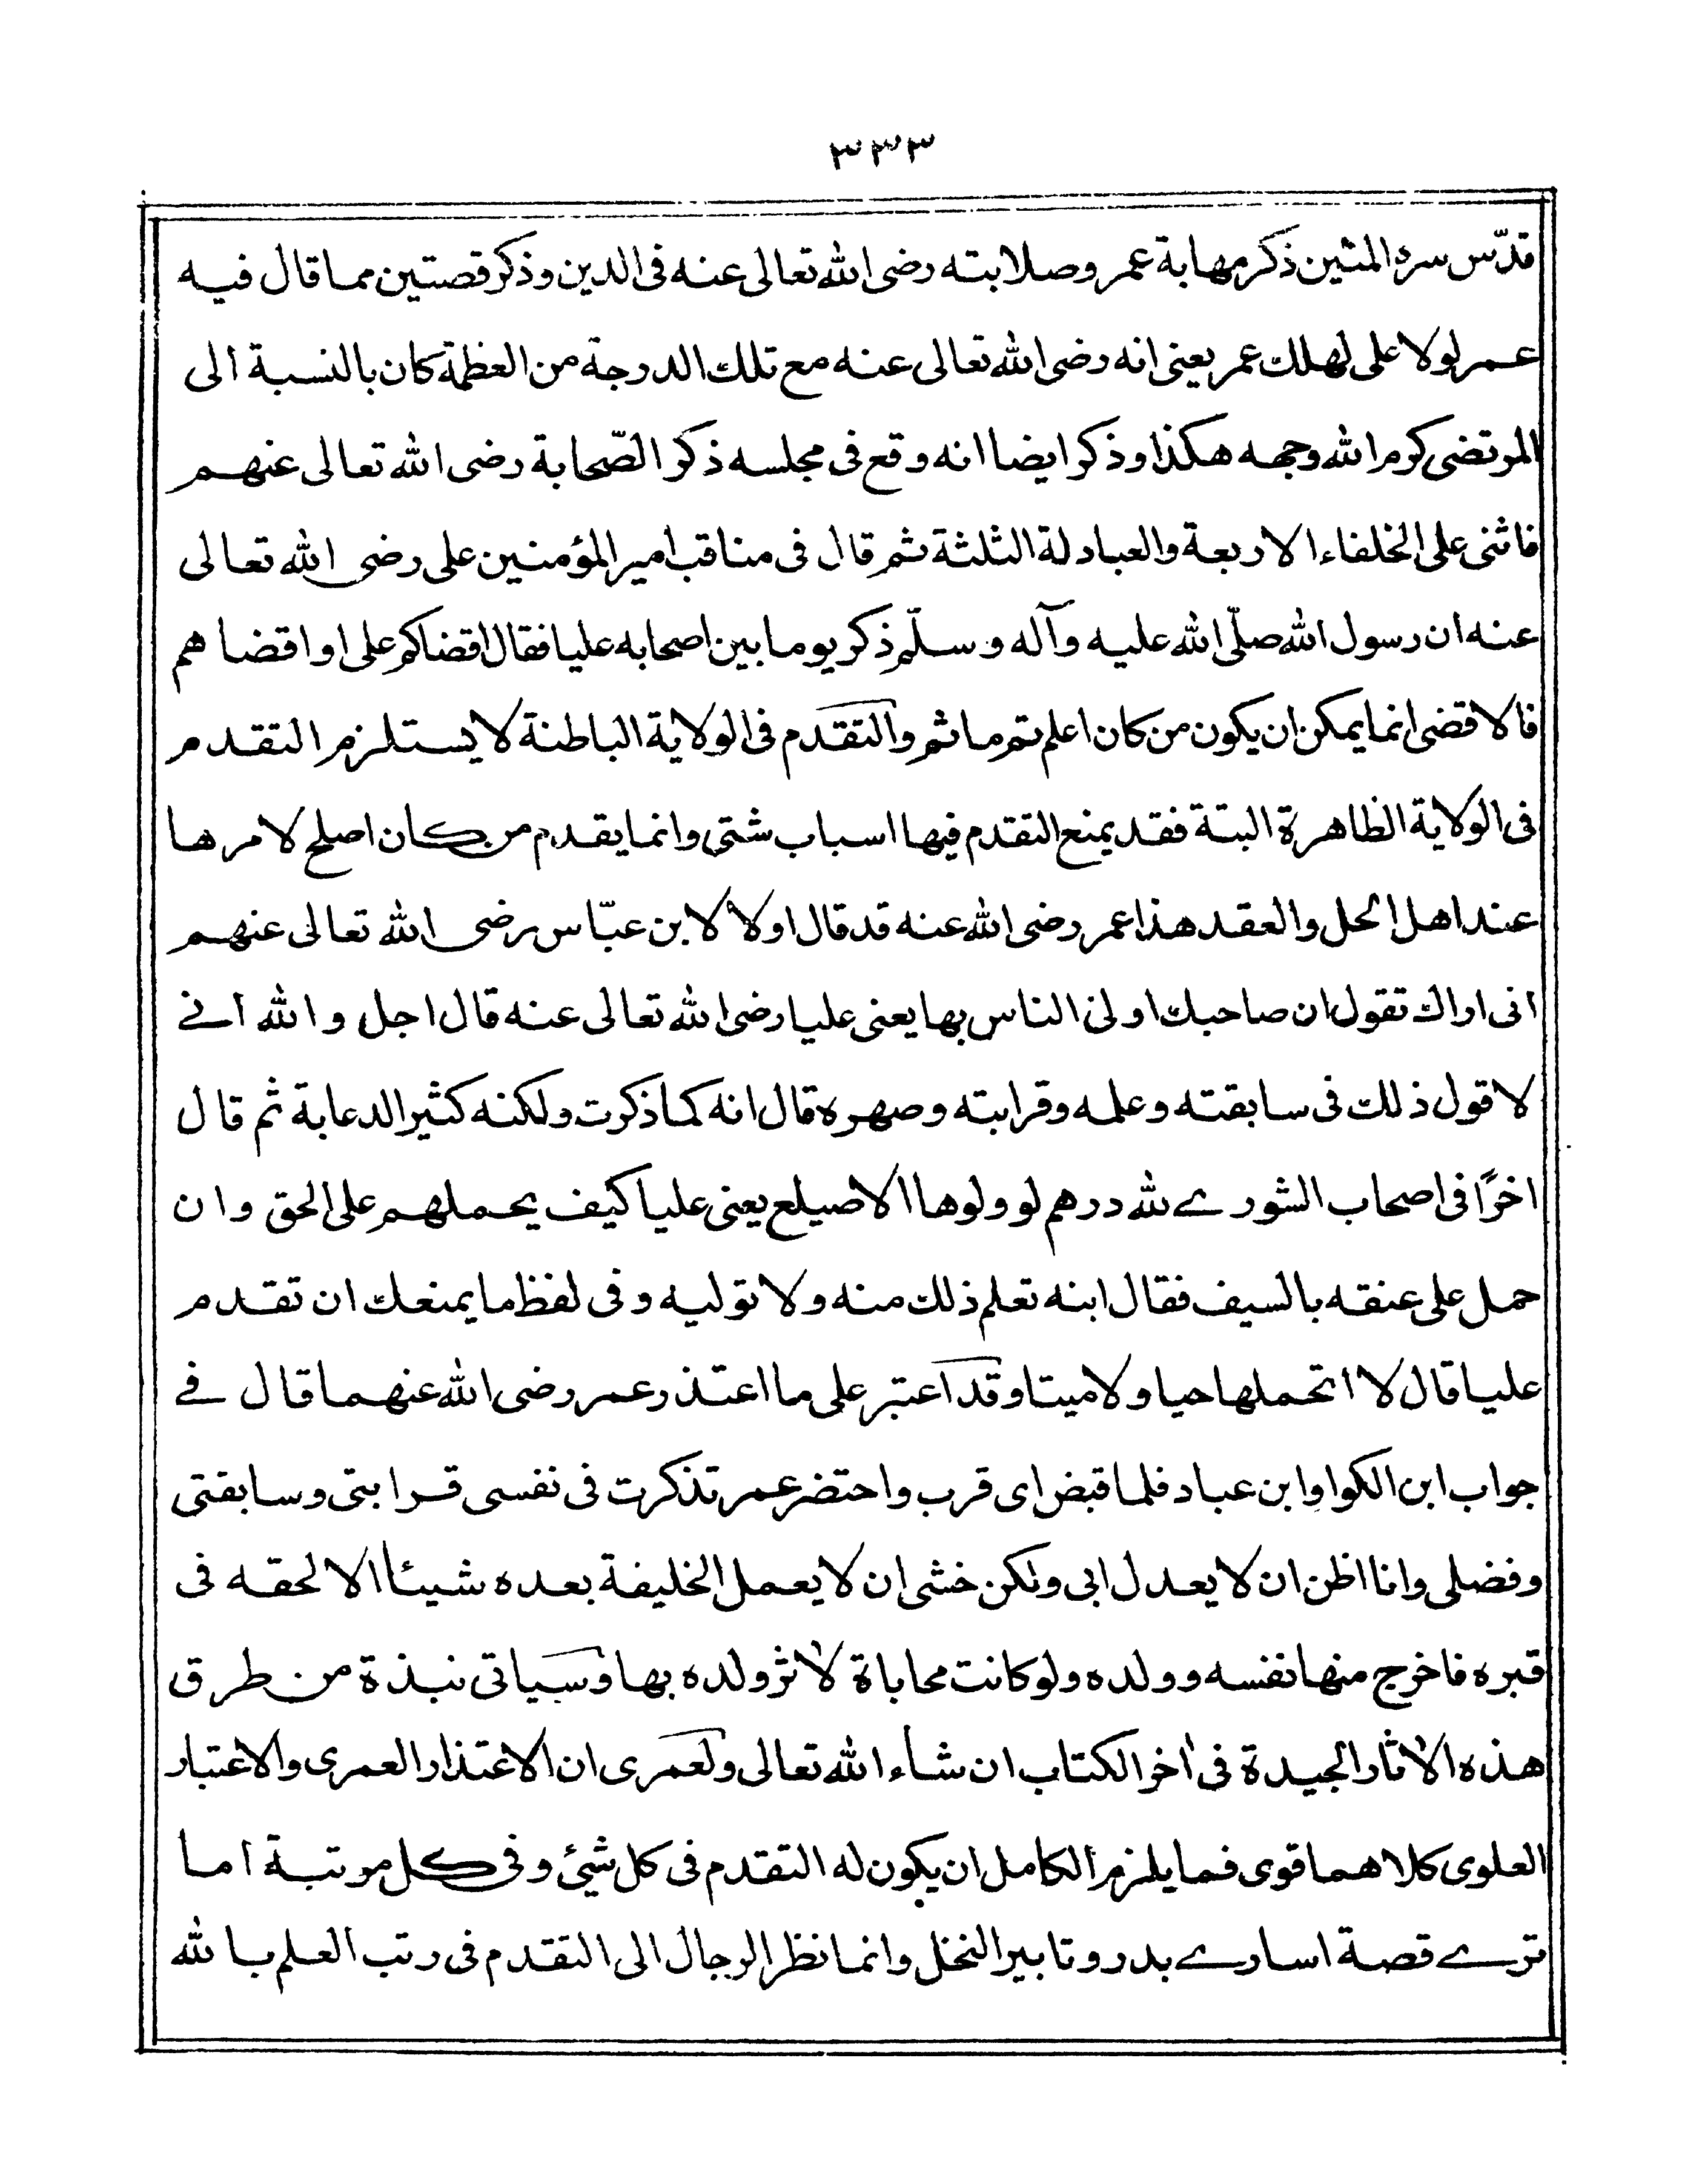 ٣٣٣
قدّس سره المثين ذكر مهابة عمر وصلابته رضى الله تعالى عنه فى الدين وذكر قصتين مما قال فيه
عمر لولا على لهلك عمر يعنى انه رضى الله تعالى عنه مع تلك الدرجة من العظمة كان بالنسبة الى
المرتضى كرم الله وجهه هكذا وذكر ايضا انه وقع فى مجلسه ذكر الصّحابة رضى الله تعالى عنهم
فاثنى على الخلفاء الاربعة والعبادلة الثلثة ثم قال فى مناقب امير المؤمنين على رضى الله تعالى
عنه ان رسول الله صلّى الله عليه وآله وسلّم ذكر يوما بين اصحابه عليا فقال اقضاكم على او اقضاهم
فالاقضى انما يمكن ان يكون من كان اعلم تم ما ثم والتقدم فى الولاية الباطنة لا يستلزم التقدم
فى الولاية الظاهرة البتة فقد يمنع التقدم فيها اسباب شتى وانما يقدم من كان اصلح لامرها
عند اهل الحل والعقد هذا عمر رضى الله عنه قد قال اولا لابن عبّاس رضى الله تعالى عنهم
انى اراك تقول ان صاحبك اولى الناس بها يعنى عليا رضى الله تعالى عنه قال اجل والله انے
لاقول ذلك فى سابقته وعلمه وقرابته وصهره قال انه كما ذكرت ولكنه كثير الدعابة ثم قال
اخرًا فى اصحاب الشورے لله درهم لو ولوها الاصيلع يعنى عليا كيف يحملهم على الحق وان
حمل على عنقه بالسيف فقال ابنه تعلم ذلك منه ولا توليه وفى لفظ ما يمنعك ان تقدم
عليا قال لا اتحملها حيا ولا ميتا وقد اعتبر على ما اعتذر عمر رضى الله عنهما قال فے
جواب ابن الكوا وابن عباد فلما قبض اى قرب واحتضر عمر تذكرت فى نفسى قرابتى وسابقتى
وفضلى وانا اظن ان لا يعدل ابى ولكن خشى ان لا يعمل الخليفة بعده شيئا الا لحقه فى
قبره فاخرج منها نفسه وولده ولو كانت محاباة لأثر ولده بها وسياتى نبذة من طرق
هذه الأثار الجيدة فى أخر الكتاب ان شاء الله تعالى ولعمرى ان الاعتذار العمرى والاعتبار
العلوى كلاهما قوى فما يلزم الكامل ان يكون له التقدم فى كل شيئ وفى كل مرتبة اما
ترے قصة اسارے بدر وتابير النخل وانما نظر الرجال الى التقدم فى رتب العلم بالله